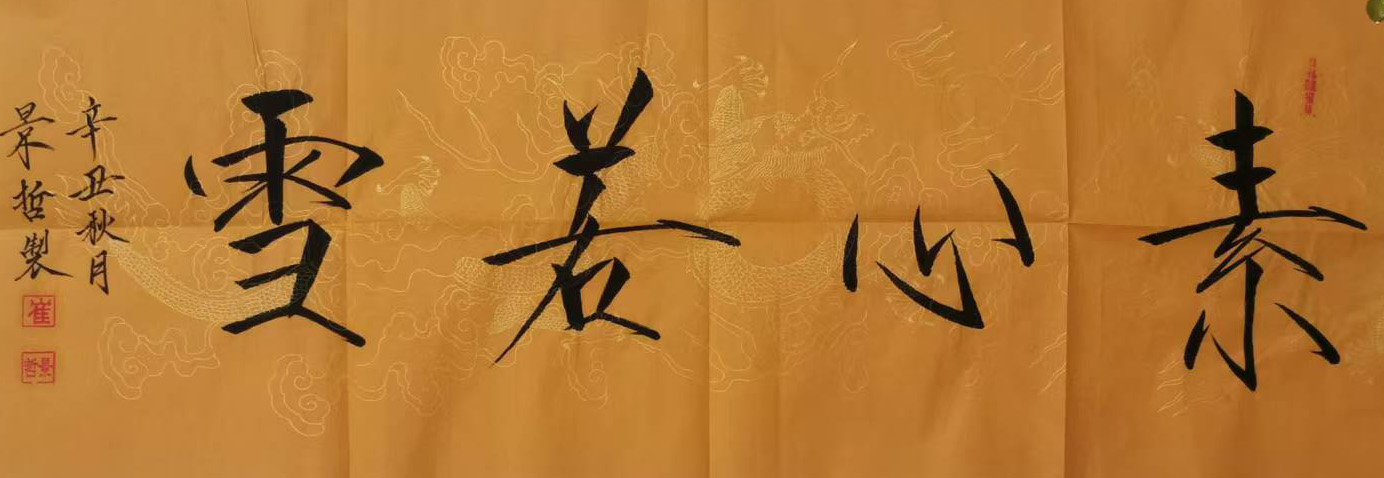 素心若雪
辛丑秋月
景哲製
崔
景哲